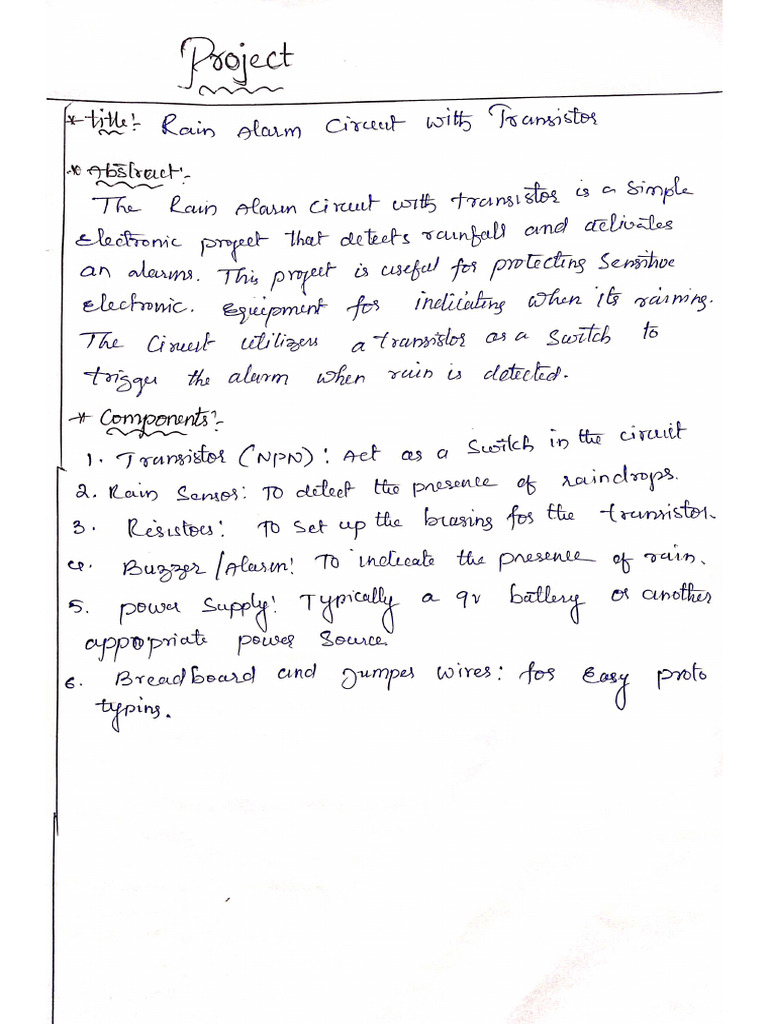 Project
* Title:- Rain Alarm Circuit with Transistor
* Abstract:-
The Rain Alarm Circuit with transistor is a simple
electronic project that detects rainfall and activates
an alarms. This project is useful for protecting sensitive
electronic. Equipment for indicating when its raining.
The Circuit utilizers a transistor as a switch to
trigger the alarm when rain is detected.
* Components:-
1. Transistor (NPN): Act as a switch in the circuit
2. Rain Sensor: To detect the presence of raindrops.
3. Resistors: To set up the biasing for the transistor.
4. Buzzer/Alarm: To indicate the presence of rain.
5. Power Supply: Typically a 9v battery or another
appropriate power source.
6. Breadboard and Jumper wires: for Easy proto
typins.